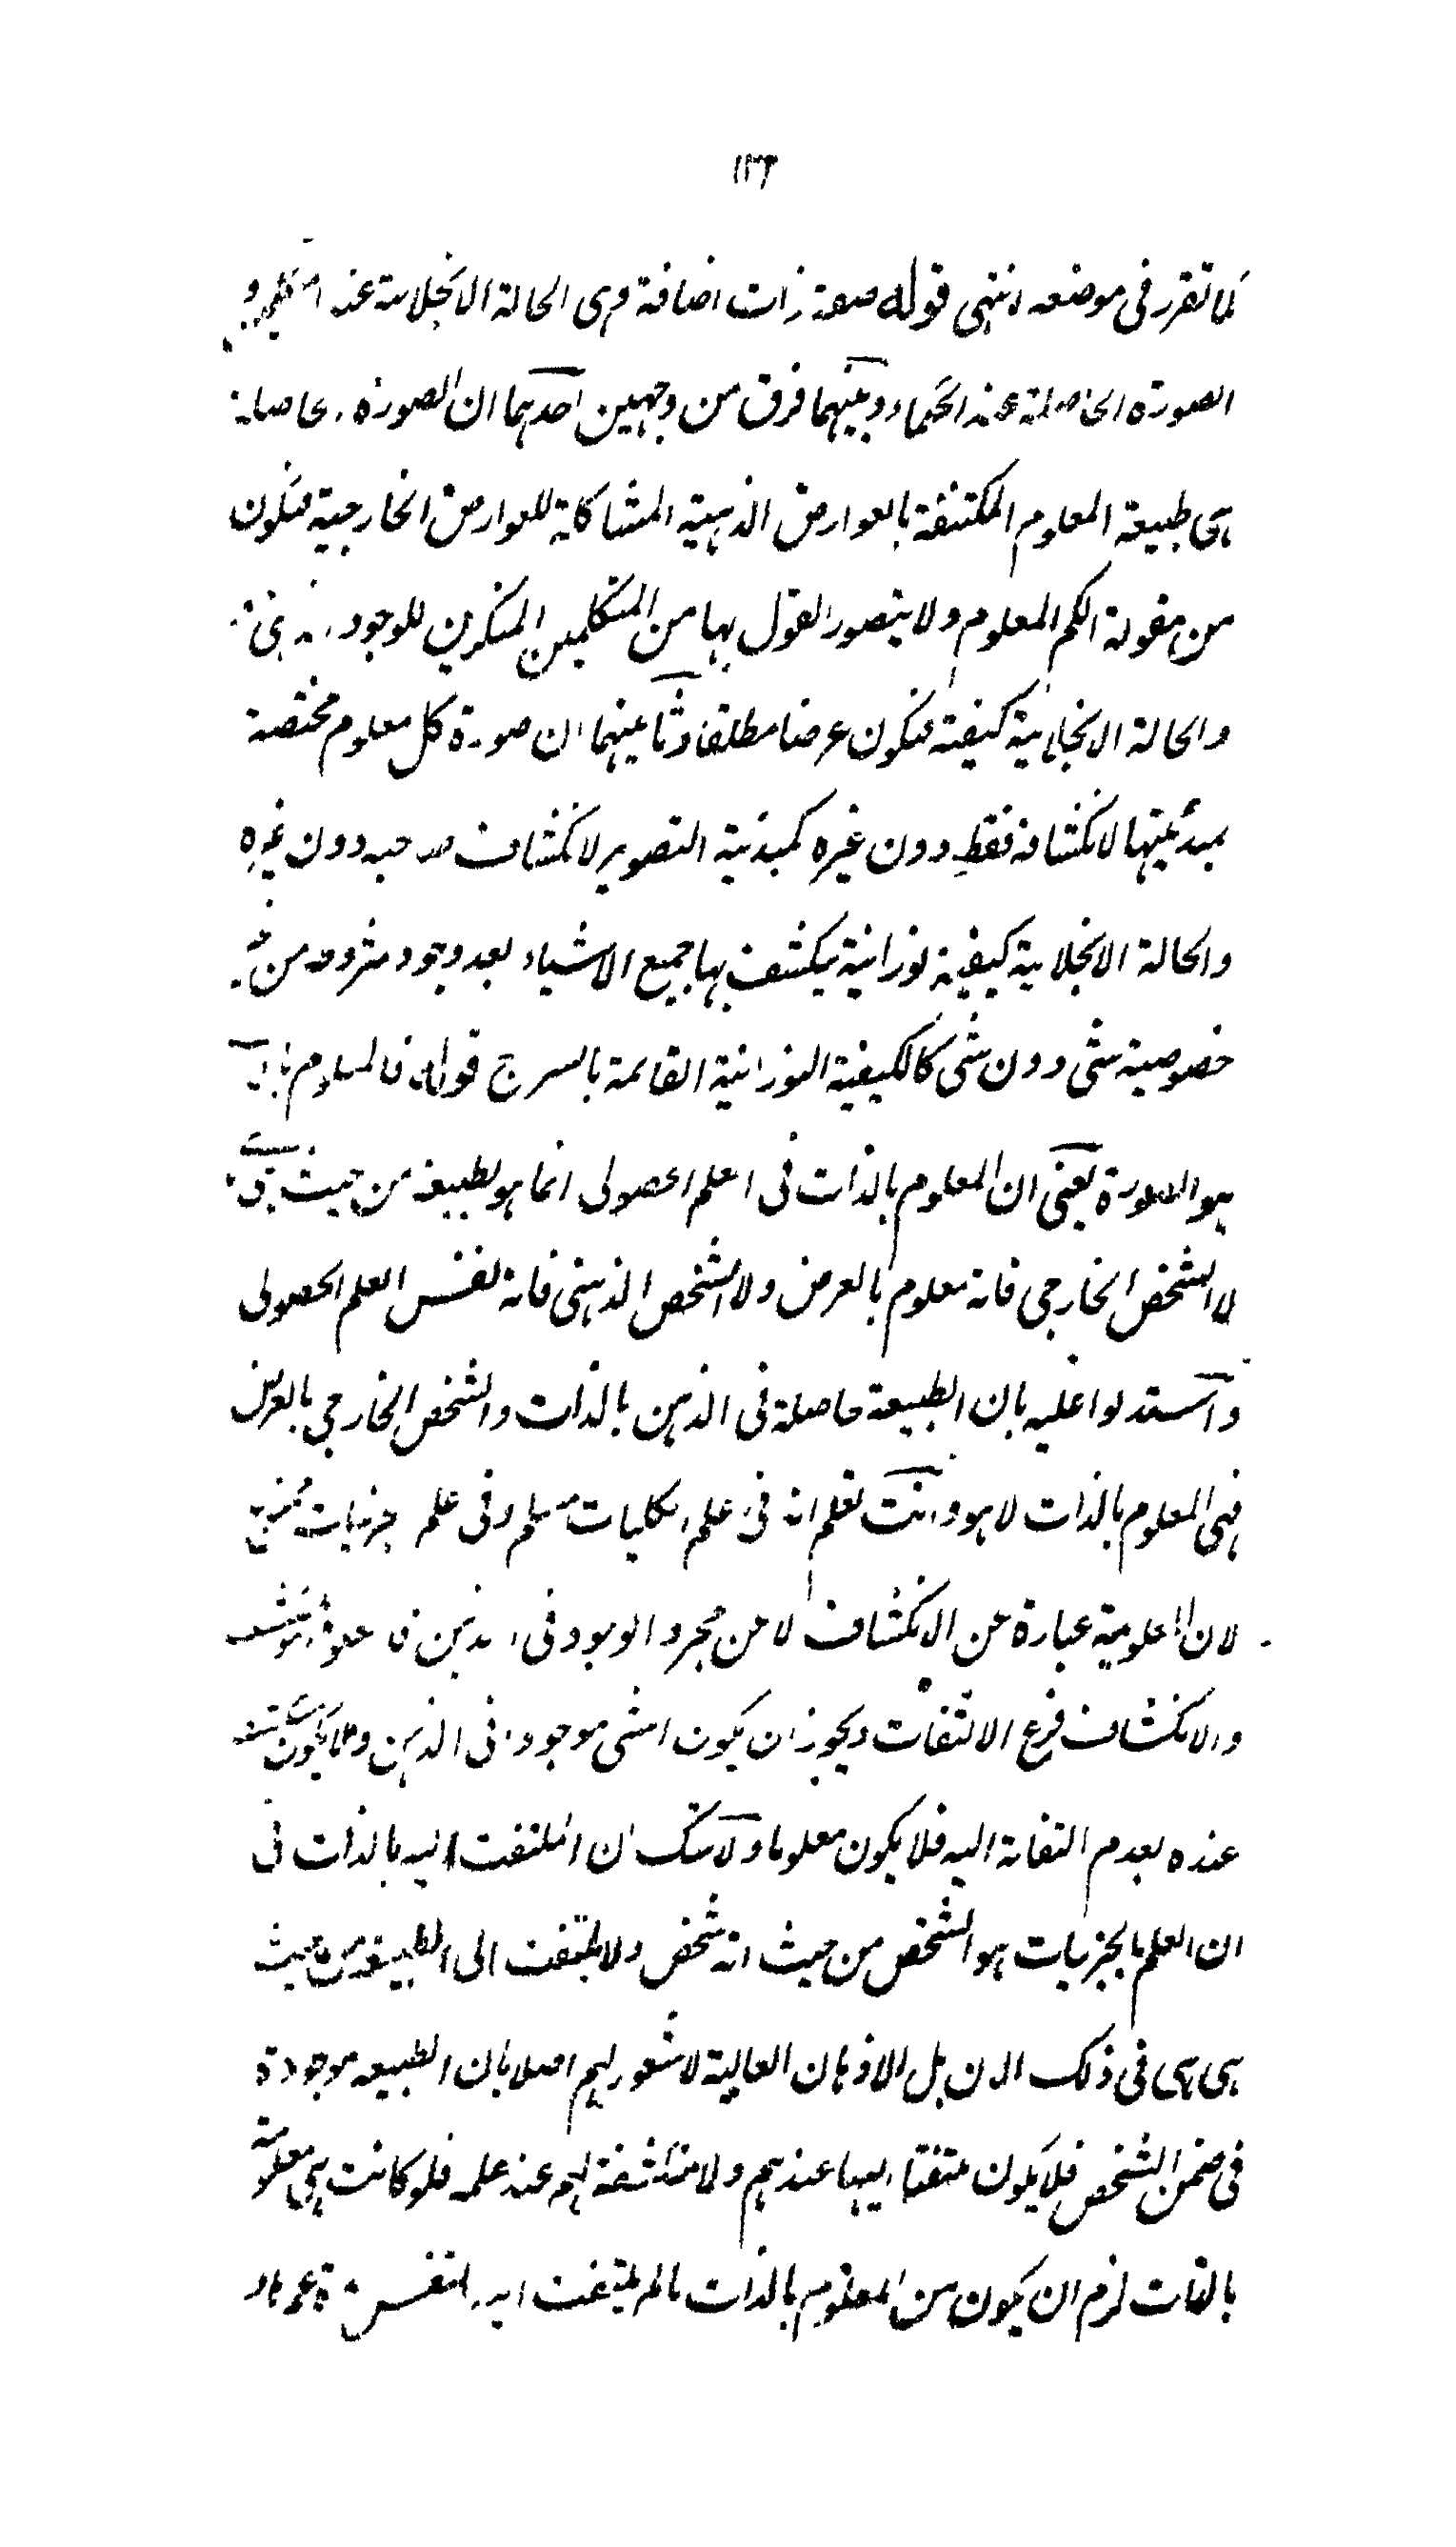 ۱۳۶
كما تقرر فى موضعه انتهى قوله صفة ذات اضافة وهى الحالة الانجلائية عند
الصورة الحاصلة عند الحكماء وبينهما فرق من وجهين احدهما ان الصورة الحاصلة
هى طبيعة المعلوم المكتنفة بالعوارض الذهنية المشاكلة للعوارض الخارجية فتكون
من مقولة الكم المعلوم ولا يتصور القول بها من المتكلمين المنكرين للوجود الذهنى
والحالة الانجلائية كيفية فتكون عرضا مطلقا وثانيهما ان صورة كل معلوم مختصة
بمبدئيتها لانكشافه فقط دون غيره كمبدئية التصوير لانكشاف صاحبه دون غيره
والحالة الانجلائية كيفية نورانية ينكشف بها جميع الاشياء بعد وجود شروطه من غير
خصوصية شئ دون شئ كالكيفية النورانية القائمة بالسرج قوله فالمعلوم بالذات
هو الصورة يعنى ان المعلوم بالذات فى العلم الحصولى انما هو الطبيعة من حيث هى
لا الشخص الخارجى فانه معلوم بالعرض ولا الشخص الذهنى فانه نفس العلم الحصولى
واستدلوا عليه بان الطبيعة حاصلة فى الذهن بالذات والشخص الخارجى بالعرض
فهى المعلوم بالذات لا هو وانت تعلم انه فى علم الكليات مسلم وفى علم الجزئيات ممنوع
لان المعلومية عبارة عن الانكشاف لا عن مجرد الوجود فى الذهن فالمعلوم هو المنكشف
والانكشاف فرع الالتفات ويجوز ان يكون الشئ موجودا فى الذهن ولا يكون منكشفا
عنده لعدم التفاته اليه فلا يكون معلوما ولا شك ان الملتفت اليه بالذات فى
ان العلم بالجزئيات هو الشخص من حيث انه شخص ولا يلتفت الى الطبيعة من حيث
هى هى فى ذلك الان بل الاذهان العالية لا شعور لهم اصلا بان الطبيعة موجودة
فى ضمن الشخص فلا يكون ملتفتا اليها عندهم ولا منكشفة لهم عند علمه فلو كانت هى معلومة
بالذات لزم ان يكون من المعلوم بالذات ما لم يلتفت اليه النفس